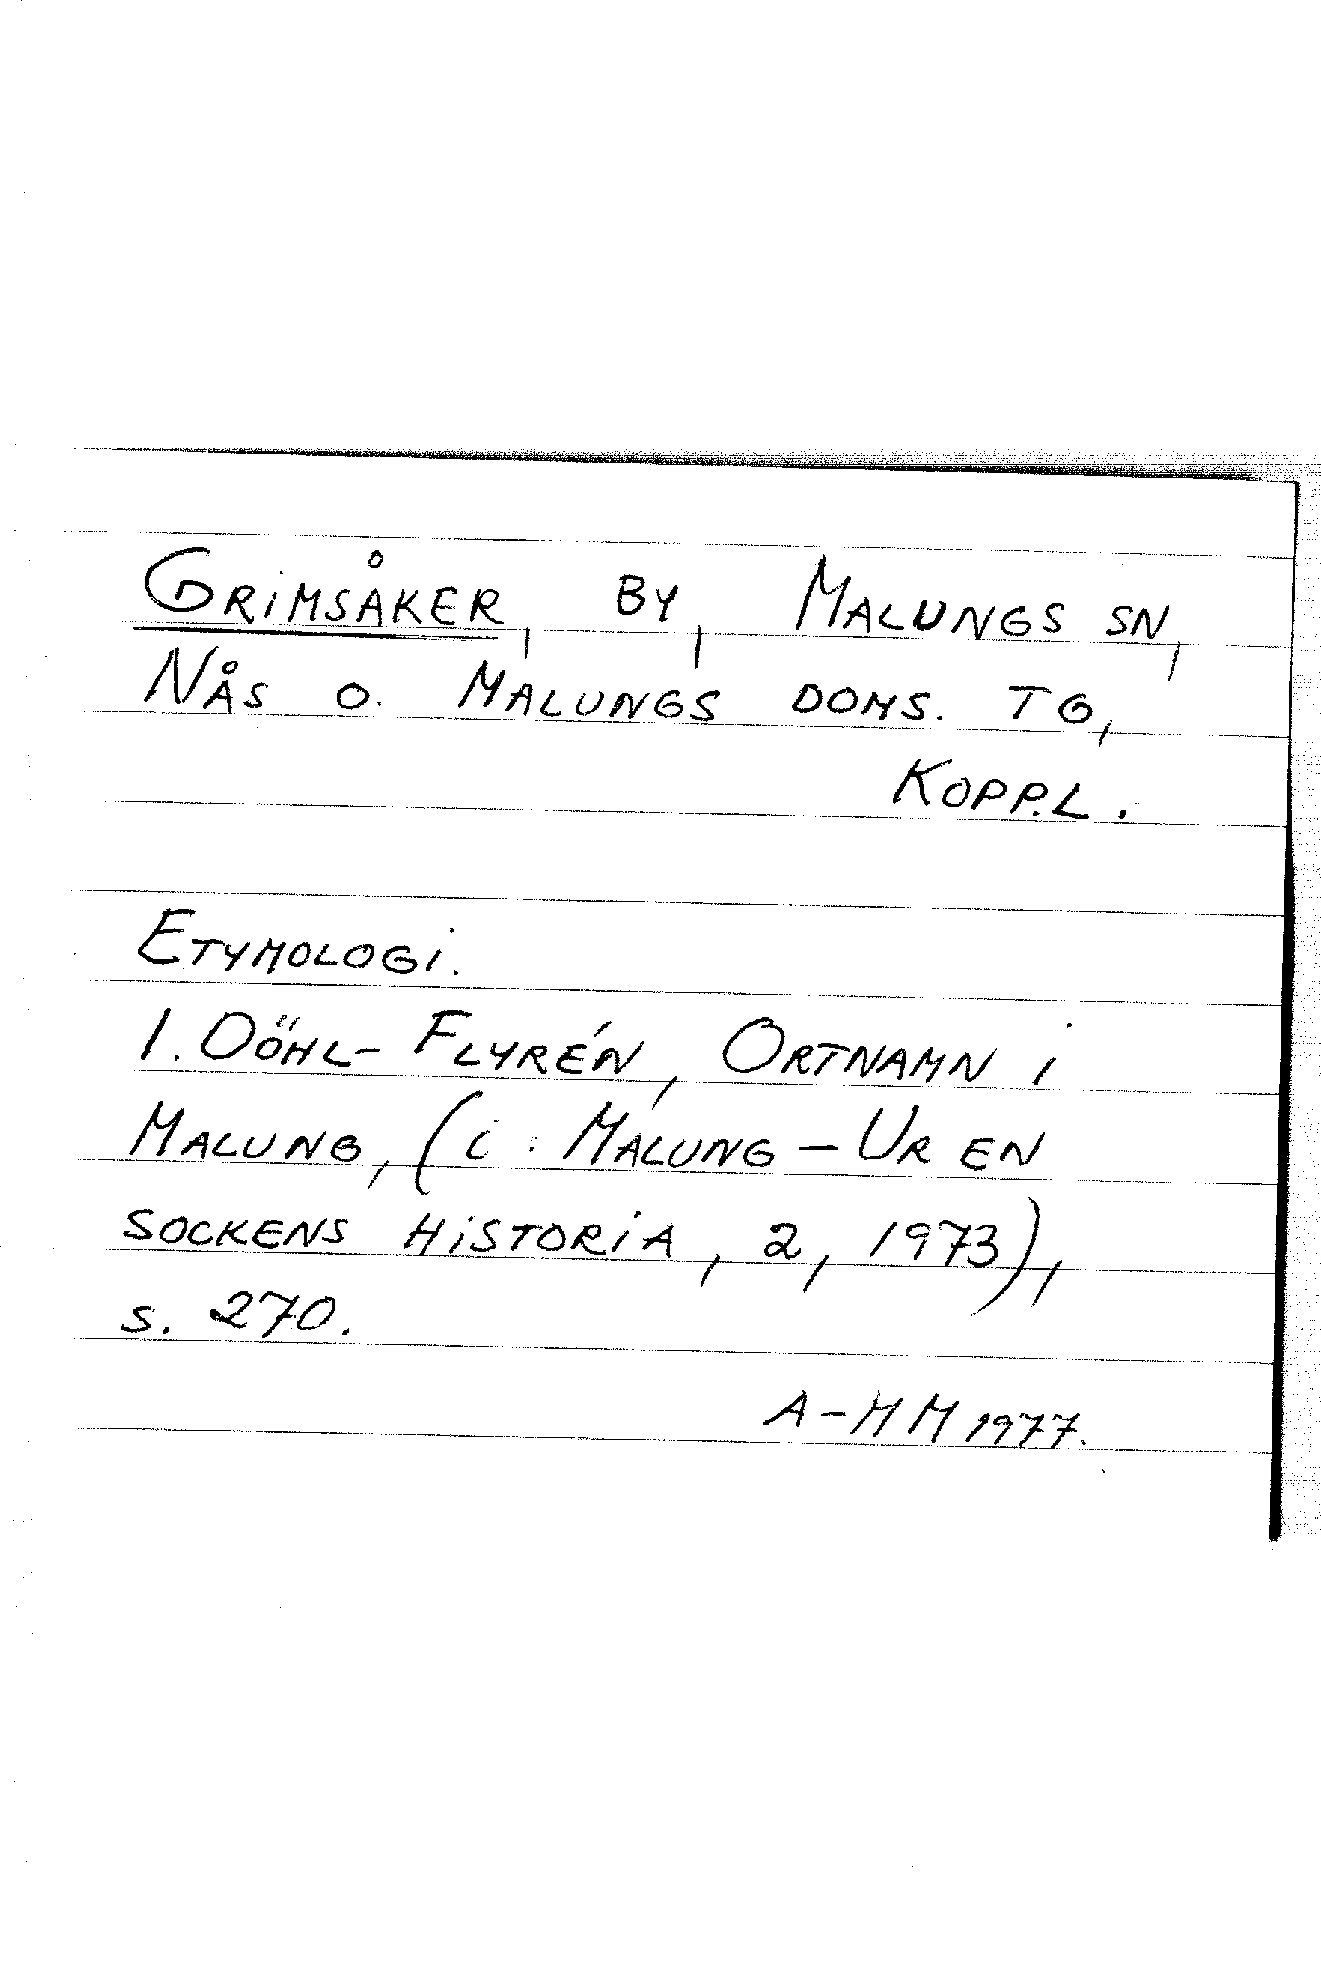 GRIMSÅKER, BY, MALUNGS SN,
NÅS O. MALUNGS DOMS. TG,
KOPP.L.
ETYMOLOGI.
I. DÖHL-FLYRÉN, ORTNAMN I
MALUNG, (I: MALUNG – UR EN
SOCKENS HISTORIA, 2, 1973),
S. 270.
A-MM 1977.